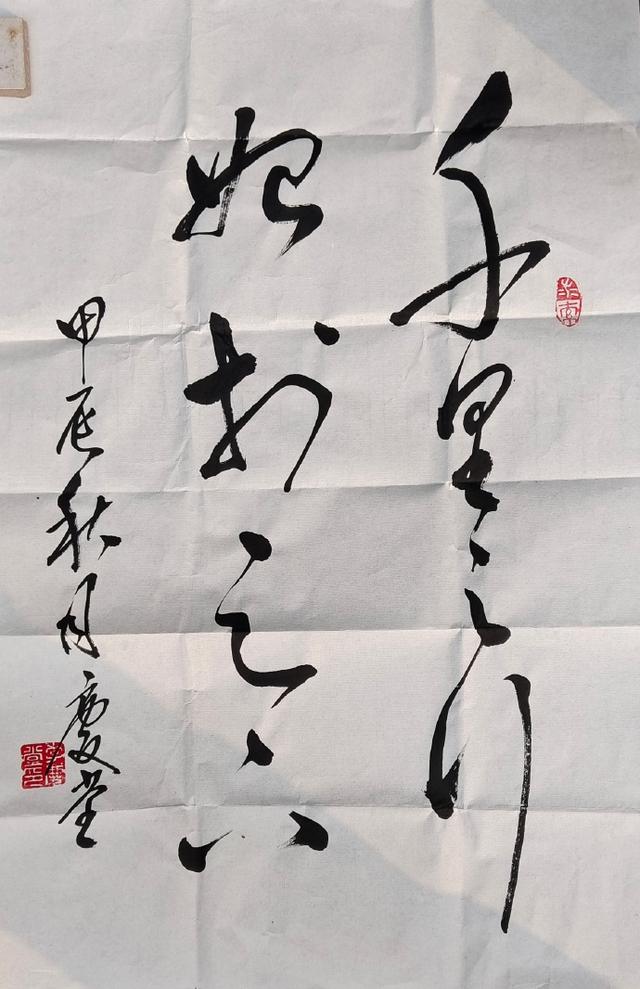 千里之行
始於足下
甲辰秋月慶堂